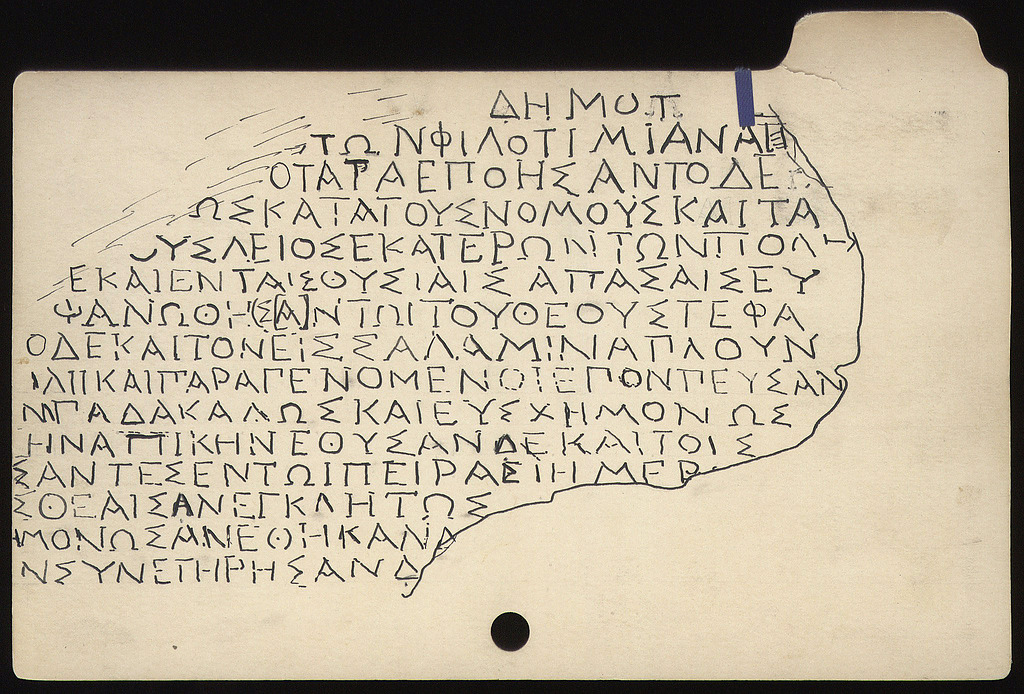 ΔΗΜΟΠ
ΤΩΝΦΙΛΟΤΙΜΙΑΝΑΠ
ΟΤΑΤΑΕΠΟΗΣΑΝΤΟΔΕ
ΩΣΚΑΤΑΤΟΥΣΝΟΜΟΥΣΚΑΙΤΑ
ΥΣΛΕΙΟΣΕΚΑΤΕΡΩΝΤΩΝΠΟΛ
ΕΚΑΙΕΝΤΑΙΣΘΥΣΙΑΙΣΑΠΑΣΑΙΣΕΥ
ΨΑΝΩΘΗ(Σ[Α]ΝΤΩΙΤΟΥΘΕΟΥΣΤΕΦΑ
ΟΔΕΚΑΙΤΟΝΕΙΣΣΑΛΑΜΙΝΑΠΛΟΥΝ
ΙΛΙΙΚΑΙΠΑΡΑΓΕΝΟΜΕΝΟΙΕΠΟΝΠΕΥΣΑΝ
ΜΠΑΔΑΚΑΛΩΣΚΑΙΕΥΣΧΗΜΟΝΩΣ
ΗΝΑΤΤΙΚΗΝΕΘΥΣΑΝΔΕΚΑΙΤΟΙΣ
ΣΑΝΤΕΣΕΝΤΩΙΠΕΙΡΑΕΙΗΜΕΡ
ΣΘΕΑΙΣΑΝΕΓΚΛΗΤΩΣ
ΜΟΝΩΣΑΝΕΘΗΚΑΝΔ
ΝΣΥΝΕΤΗΡΗΣΑΝΔ